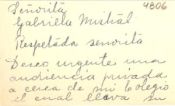 4806
Señorita
Gabriela Mistral
Respetada señorita
Deseo urgente una
audiencia privada
a cerca de mi colegio
el cual lleva su